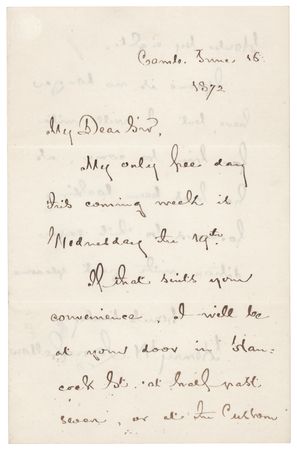 Camb. June 16
1872
My Dear Sir,
My only free day
this coming week is
Wednesday the 19th.
If that suits your
convenience, I will be
at your door in Han-
cock St. at half past
seven, or at the Custom